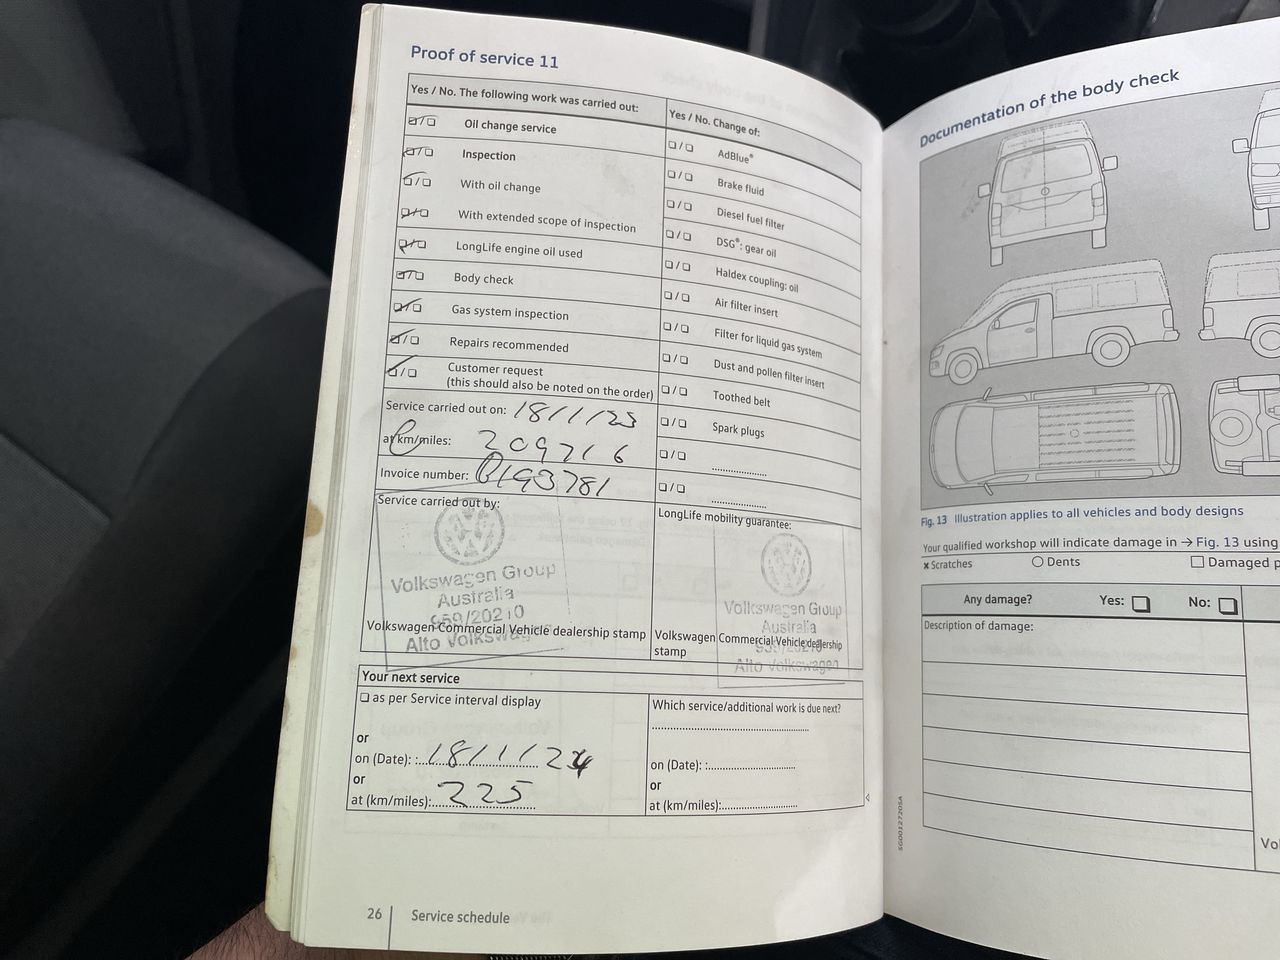 Proof of service 11
Yes / No. The following work was carried out:
☑/☐ Oil change service
☑/☐ Inspection
☑/☐ With oil change
☑/☐ With extended scope of inspection
☑/☐ LongLife engine oil used
☑/☐ Body check
☑/☐ Gas system inspection
☑/☐ Repairs recommended
☑/☐ Customer request
(this should also be noted on the order)
Service carried out on: 18/1/23
at km/miles: 209716
Invoice number: 0193781
Yes / No. Change of:
☐/☐ AdBlue®
☐/☐ Brake fluid
☐/☐ Diesel fuel filter
☐/☐ DSG®: gear oil
☐/☐ Haldex coupling: oil
☐/☐ Air filter insert
☐/☐ Filter for liquid gas system
☐/☐ Dust and pollen filter insert
☐/☐ Toothed belt
☐/☐ Spark plugs
☐/☐ ....................
☐/☐ ....................
Service carried out by:
Volkswagen Group
Australia
959/20210
Alto Volkswagen
Volkswagen Commercial Vehicle dealership stamp
LongLife mobility guarantee:
Volkswagen Group
Australia
Alto Volkswagen
Volkswagen Commercial Vehicle dealership
stamp
Your next service
☐ as per Service interval display
or
on (Date): 18/1/24
or
at (km/miles): 225
Which service/additional work is due next?
on (Date):
or
at (km/miles):
26 Service schedule
Documentation of the body check
Fig. 13 Illustration applies to all vehicles and body designs
Your qualified workshop will indicate damage in → Fig. 13 using
× Scratches ○ Dents ☐ Damaged p
Any damage? Yes: ☐ No: ☐
Description of damage:
SGD0127205A
Vo